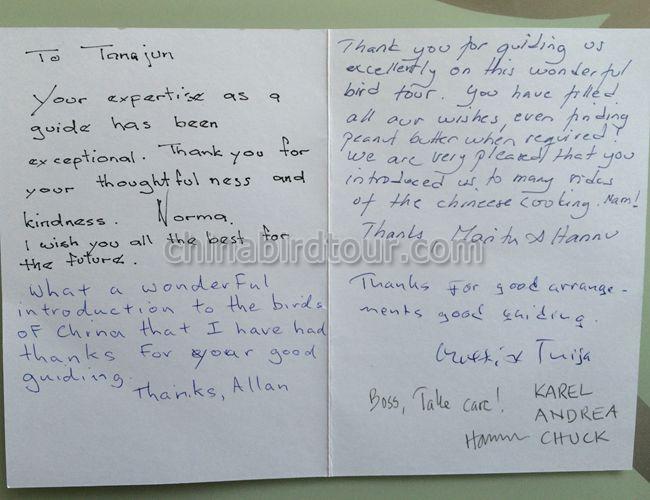 To Tanajun
Your expertise as a
guide has been
exceptional. Thank you for
your thoughtful ness and
kindness. Norma.
I wish you all the best for
the future.
What a wonderful
introduction to the birds
of China that I have had
thanks for your good
guiding.
Thanks, Allan
Thank you for guiding us
excellently on this wonderful
bird tour. You have filled
all our wishes, even finding
peanut butter when required!
We are very pleased that you
introduced us to many sides
of the chineese cooking. Mam!
Thanks Marita & Hannu
Thanks for good arrange-
ments good guiding.
& Tuija
Boss, Take care!
KAREL
ANDREA
Hannu CHUCK
chinabirdtour.com